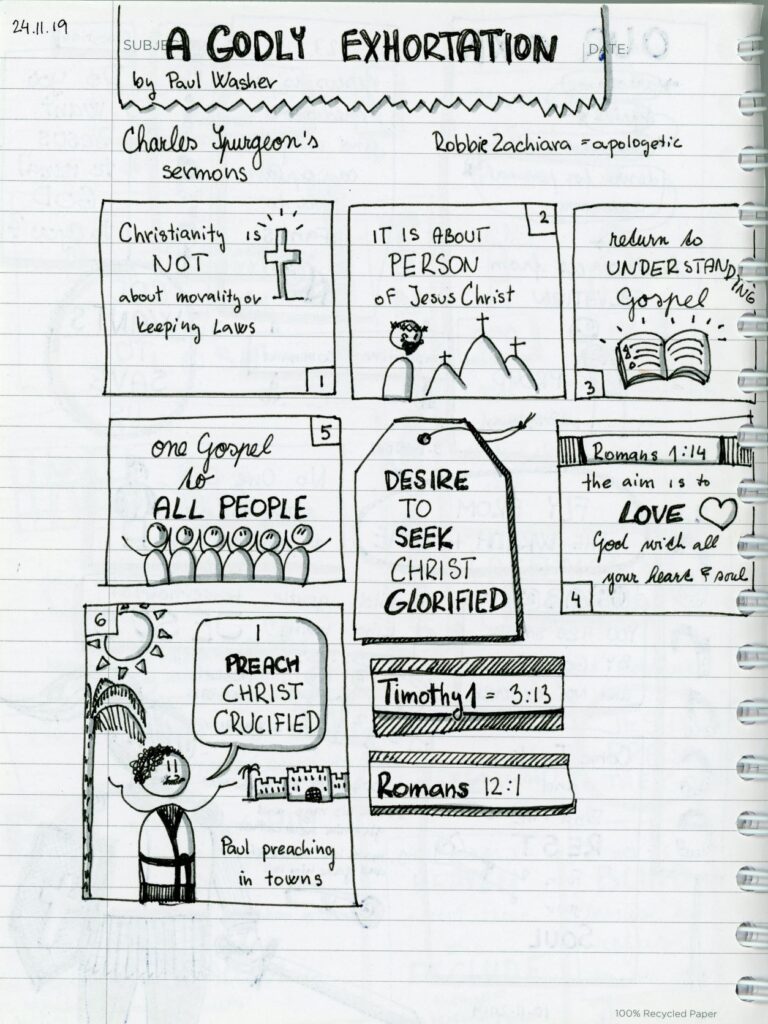 24.11.19
SUBJE
DATE:
A GODLY EXHORTATION
by Paul Washer
Charles Spurgeon's
sermons
Robbie Zachiara = apologetic
Christianity is
NOT
about morality or
keeping Laws
1
2
IT IS ABOUT
PERSON
of Jesus Christ
return to
UNDERSTANDING
Gospel
3
5
one Gospel
to
ALL PEOPLE
DESIRE
TO
SEEK
CHRIST
GLORIFIED
Romans 1:14
the aim is to
LOVE
God with all
your heart & soul
4
6
I
PREACH
CHRIST
CRUCIFIED
Paul preaching
in towns
Timothy 1 = 3:13
Romans 12:1
100% Recycled Paper